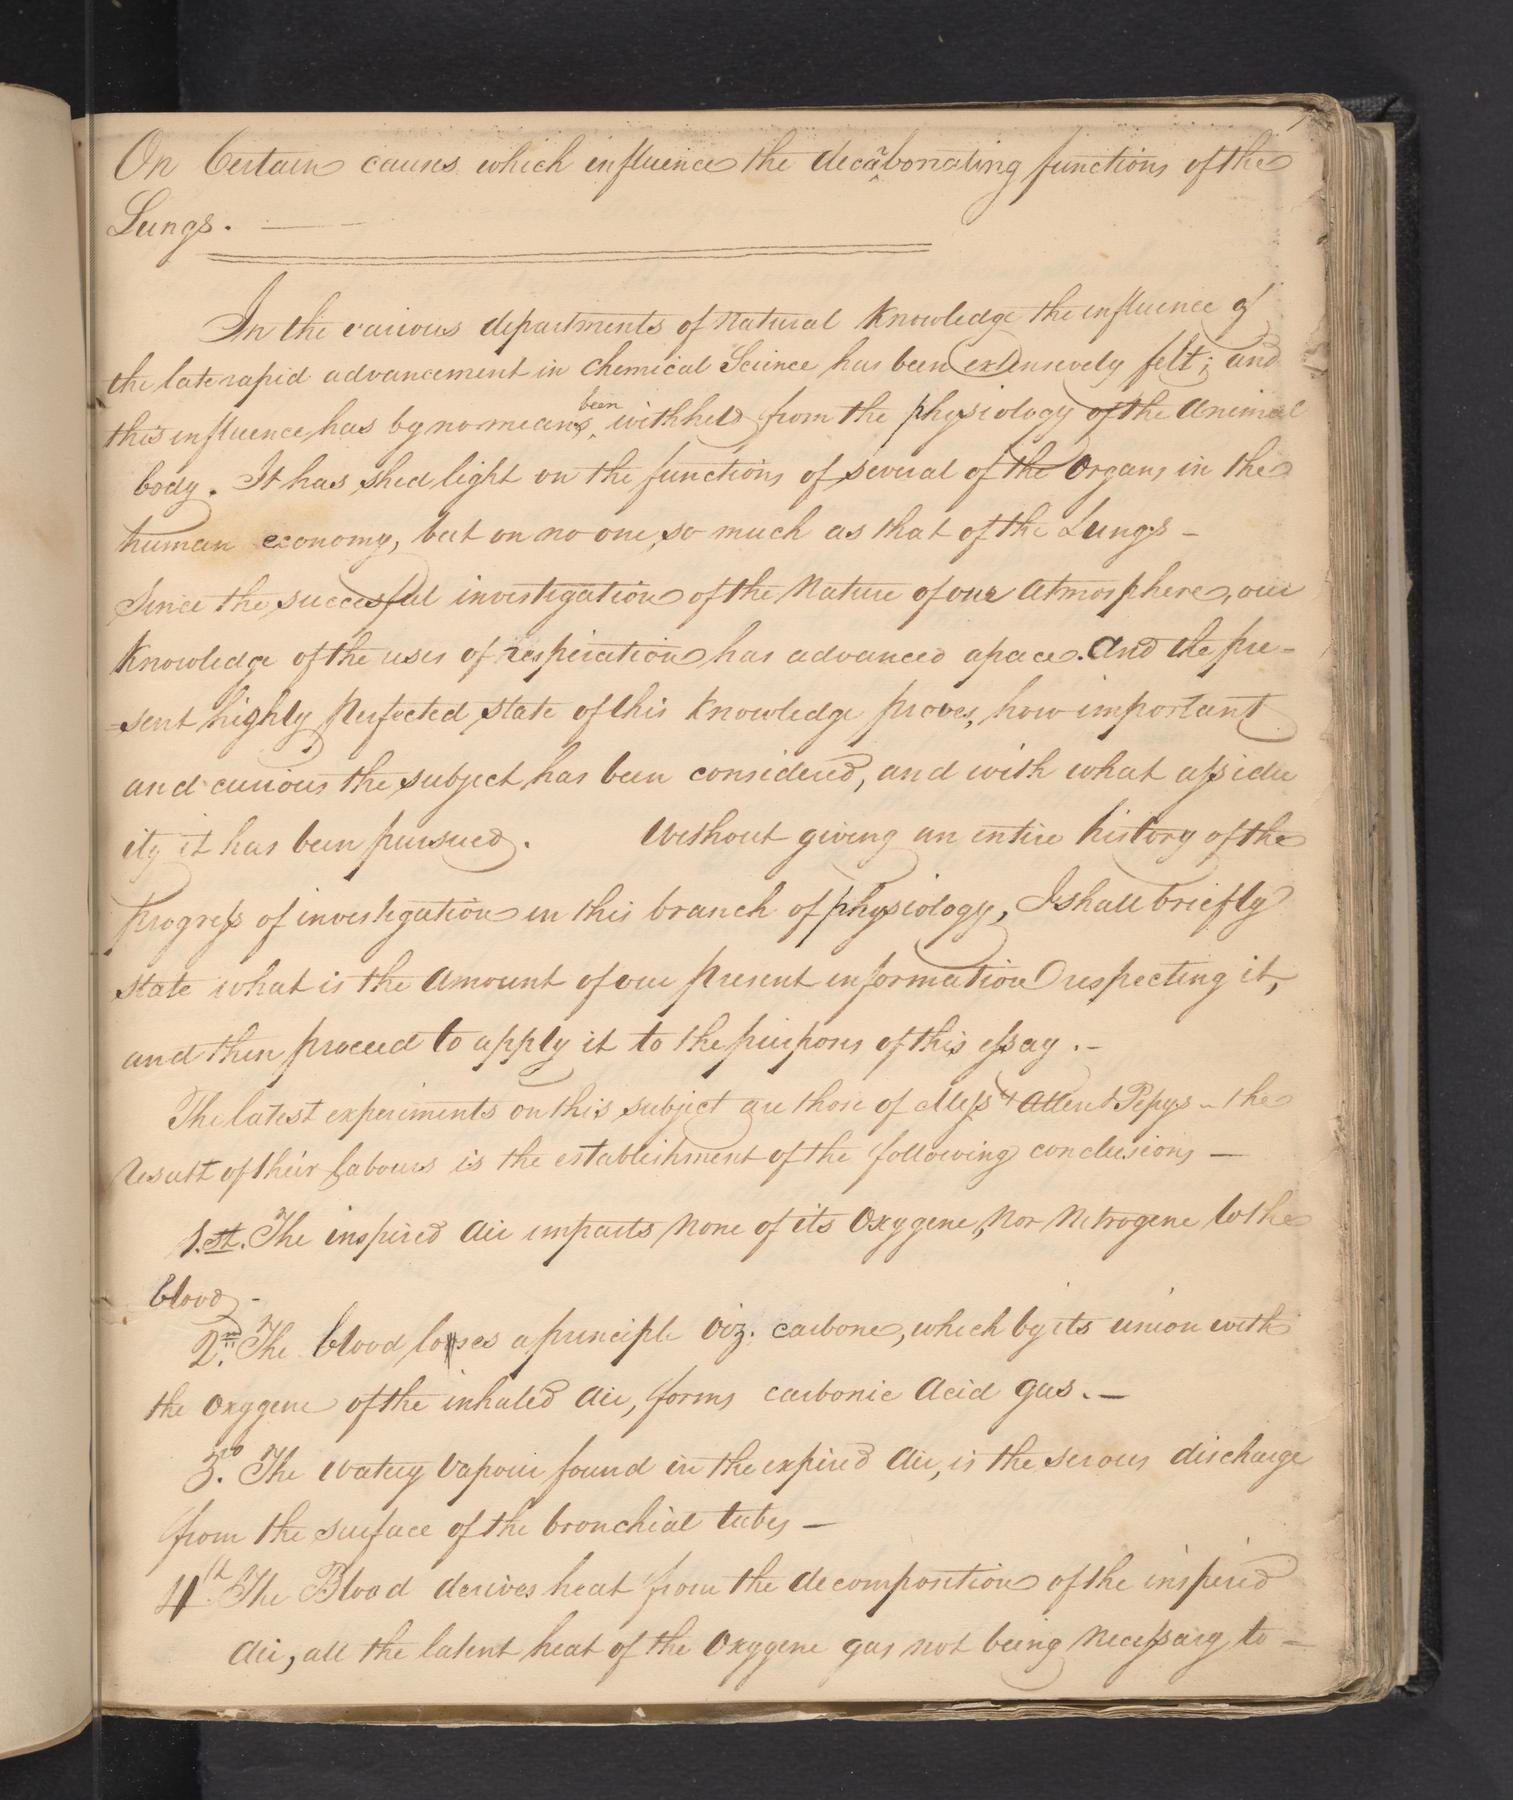 On Certain causes which influence the decarbonating functions of the
Lungs. —
In the various departments of Natural Knowledge the influence of
the late rapid advancement in Chemical Science has been extensively felt; and
this influence, has by no means been withheld from the physiology of the Animal
body. It has shed light on the functions of several of the Organs in the
human economy, but on no one, so much as that of the Lungs –
Since the successful investigation of the Nature of our Atmosphere, our
Knowledge of the uses of respiration has advanced apace. And the pre-
-sent highly perfected state of this Knowledge proves, how important
and curious the subject has been considered, and with what assidu
ity it has been pursued. Without giving an entire history of the
progress of investigation in this branch of physiology, I shall briefly
state what is the Amount of our present information respecting it,
and then proceed to apply it to the purposes of this essay. –
The latest experiments on this subject are those of Mess.rs Allen & Pepys – the
result of their labours is the establishment of the following conclusions –
1.st. The inspired Air imparts None of its Oxygene, Nor Nitrogene to the
blood –
2.nd The blood loses a principle Viz. carbone, which by its union with
the Oxygene of the inhaled Air, forms carbonic Acid gas. –
3.rd The watery Vapour found in the expired Air, is the serous discharge
from the surface of the bronchial tubes –
4th The Blood derives heat from the decomposition of the inspired
Air, all the latent heat of the Oxygene gas not being Necessary to –